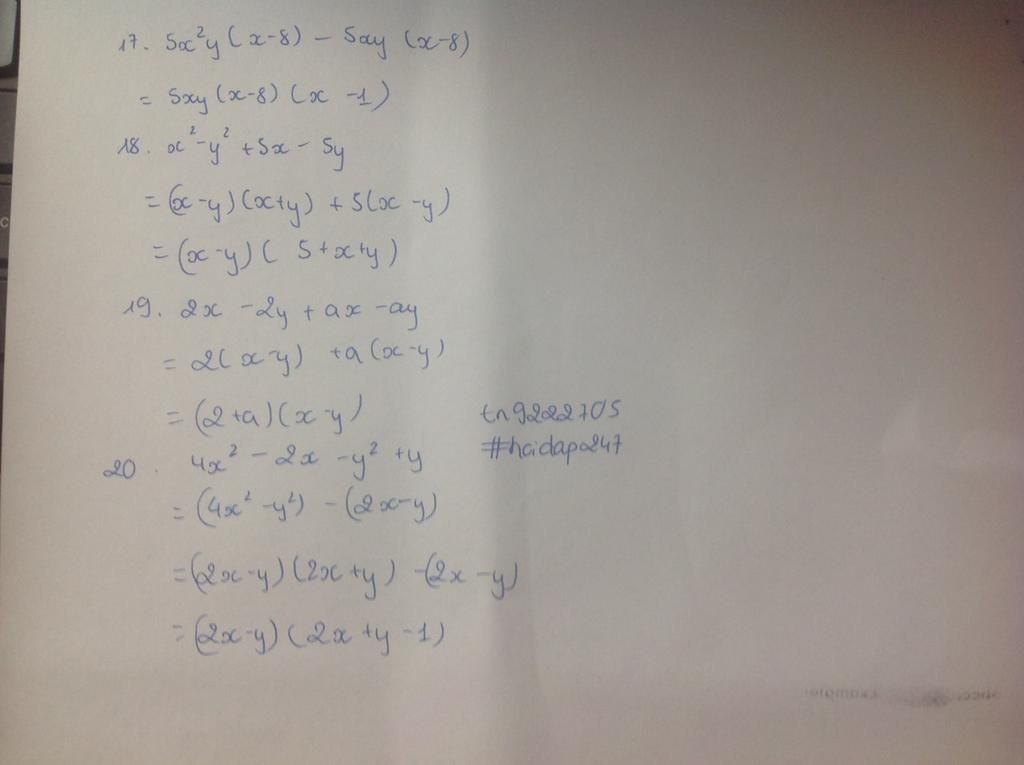 17. 5x²y (x-8) - 5xy (x-8)
= 5xy (x-8) (x -1)
18. x² - y² + 5x - 5y
= (x - y) (x+y) + 5(x - y)
= (x - y) ( 5 + x + y)
19. 2x - 2y + ax - ay
= 2( x - y) + a (x - y)
= (2 + a) (x - y)
tn9222705
#hoidap247
20. 4x² - 2x - y² + y
= (4x² - y²) - (2x - y)
= (2x - y) (2x + y) - (2x - y)
= (2x - y) ( 2x + y - 1)